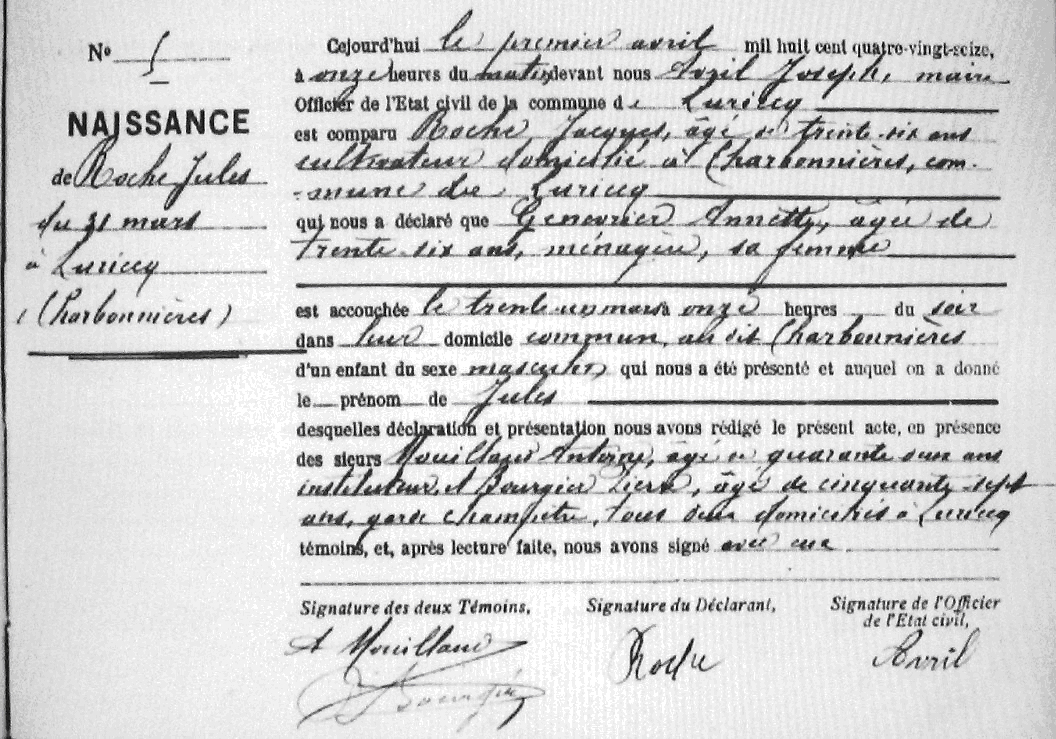 N° 5
NAISSANCE
de Roche Jules
du 31 mars
à Luriecq
(Charbonnières)
Cejourd'hui le premier avril mil huit cent quatre-vingt-seize,
à onze heures du matin, devant nous Avril Joseph, maire
Officier de l'Etat civil de la commune de Luriecq
est comparu Roche Jacques, âgé de trente-six ans
cultivateur domicilié à Charbonnières, com-
-mune de Luriecq
qui nous a déclaré que Genevrier Annette, âgée de
trente-six ans, ménagère, sa femme
est accouchée le trente-un mars à onze heures du soir
dans leur domicile commun, au dit Charbonnières
d'un enfant du sexe masculin, qui nous a été présenté et auquel on a donné
le prénom de Jules
desquelles déclaration et présentation nous avons rédigé le présent acte, en présence
des sieurs Mouilland Antoine, âgé de quarante ans
instituteur, et Bourgier Pierre, âgé de cinquante-sept
ans, garde champêtre, tous deux domiciliés à Luriecq
témoins, et, après lecture faite, nous avons signé avec eux
Signature des deux Témoins,
Signature du Déclarant,
Signature de l'Officier
de l'Etat civil,
A Mouilland
Roche
Avril